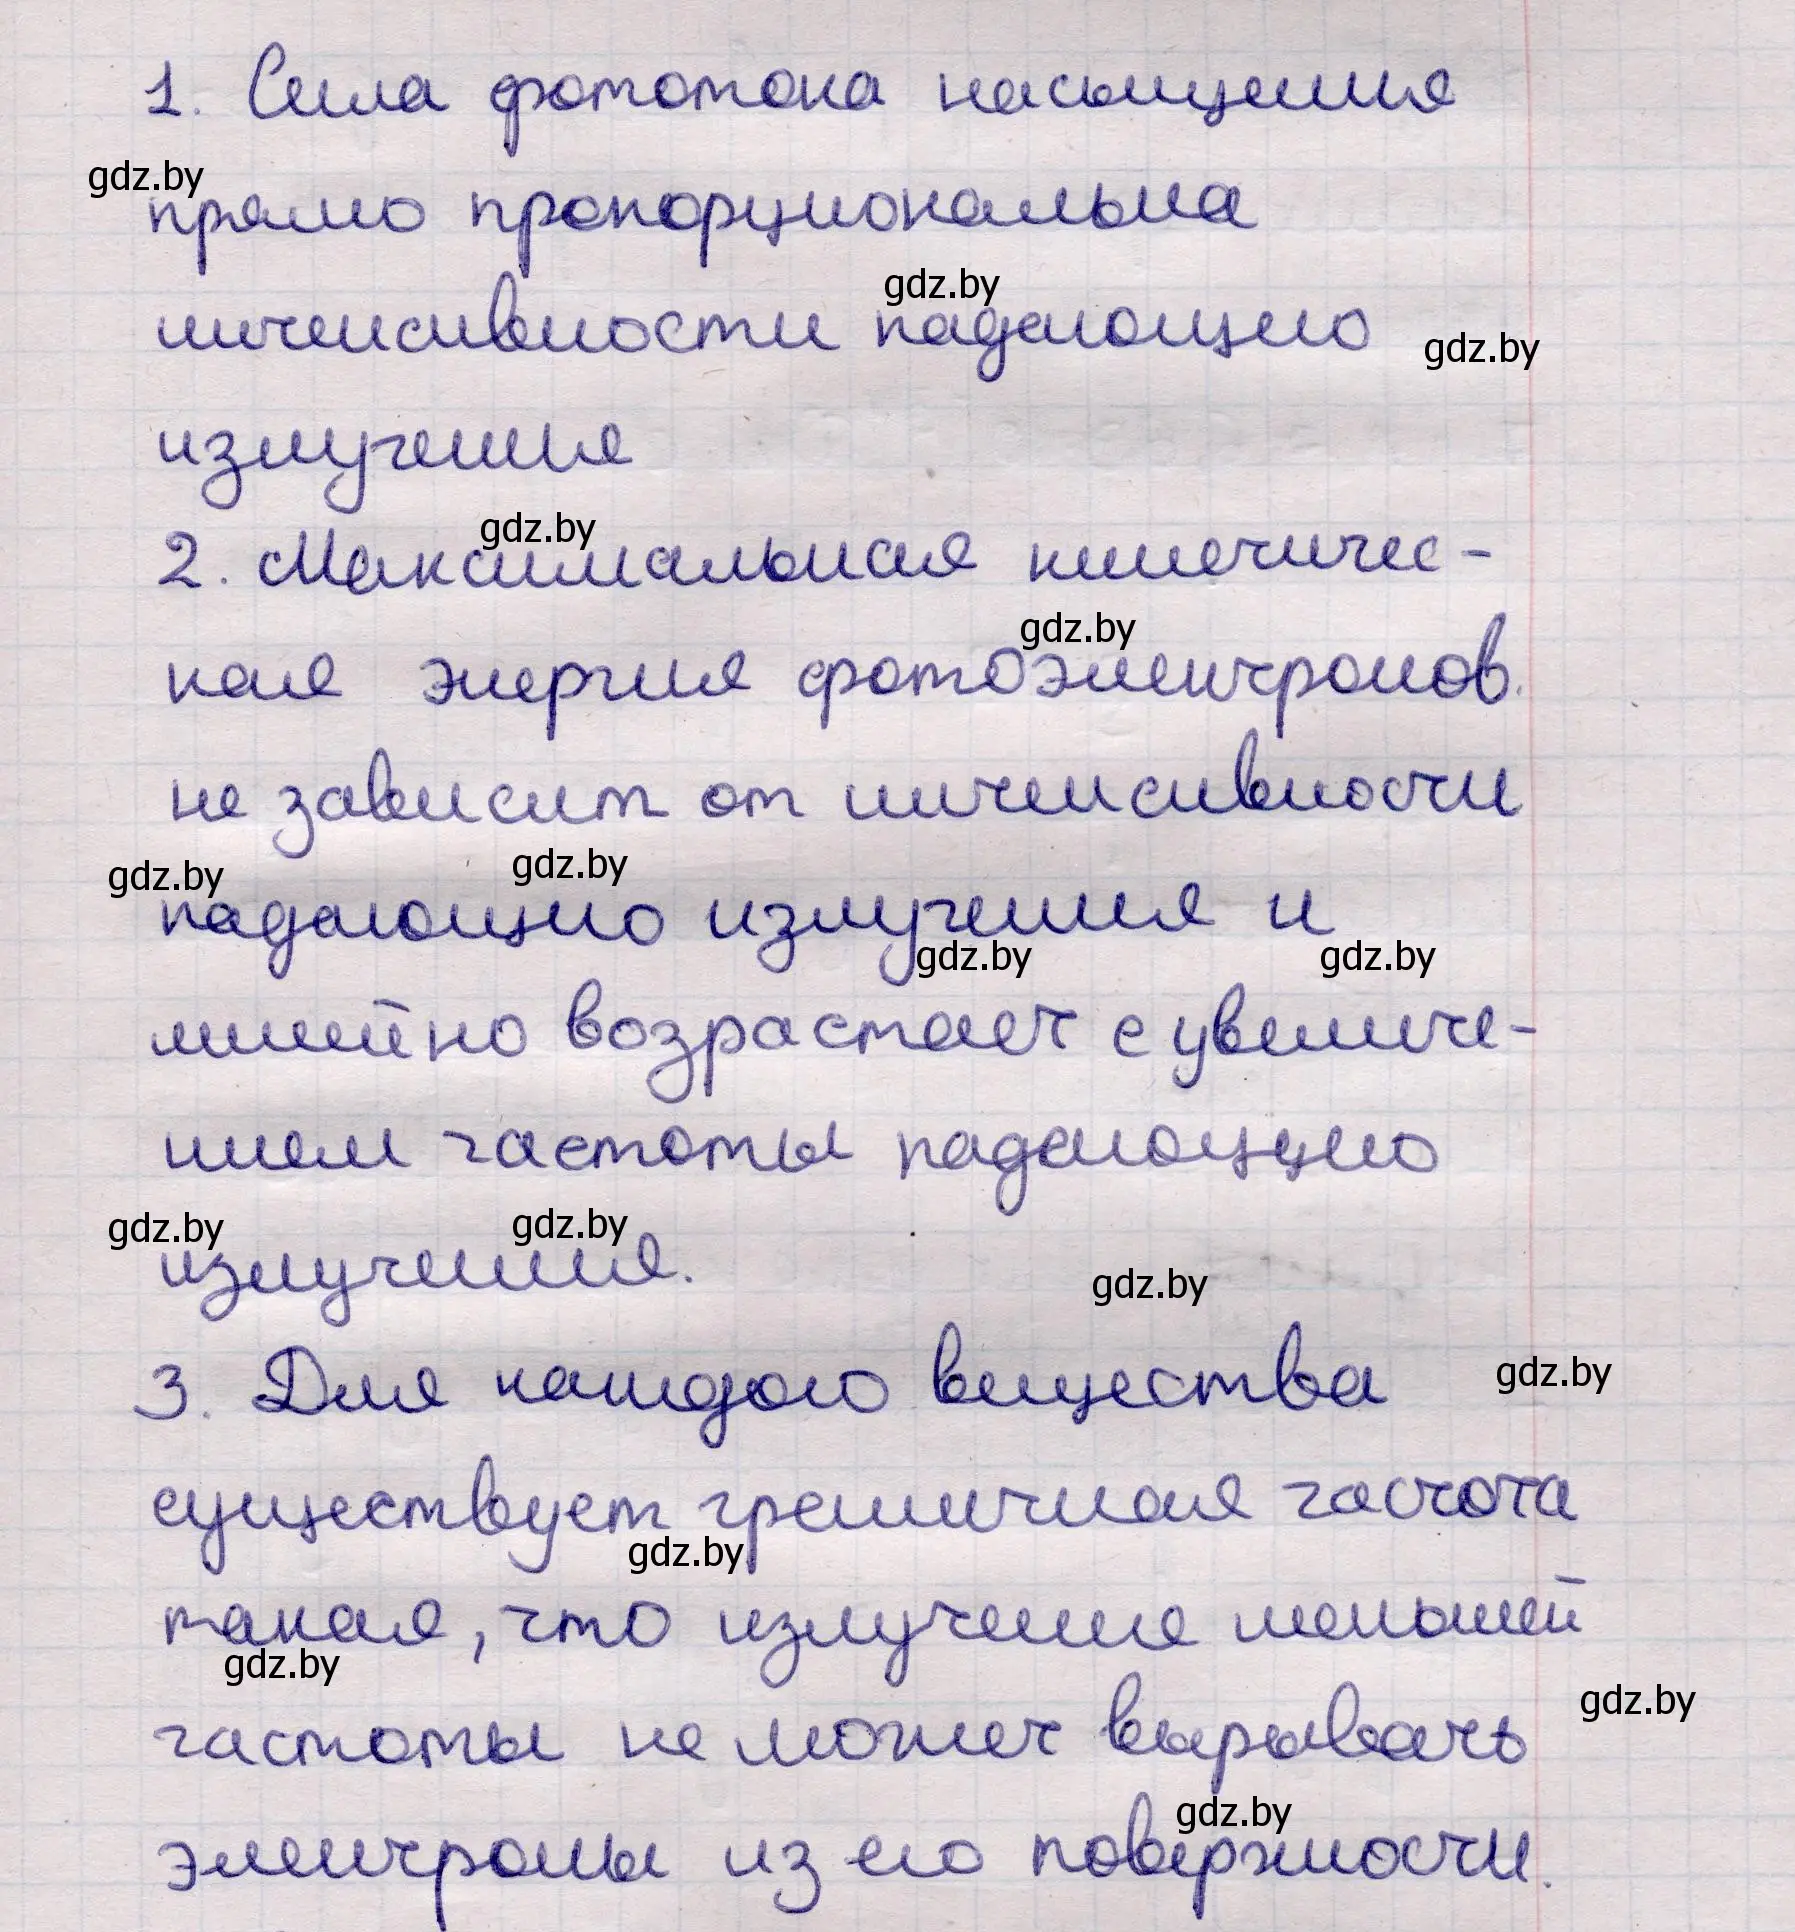 1. Сила фототока насыщения
gdz.by
прямо пропорциональна
gdz.by
интенсивности падающего
gdz.by
излучения
gdz.by
2. Максимальная кинетичес-
gdz.by
кая энергия фотоэлектронов
не зависит от интенсивности
gdz.by gdz.by
падающего излучения и
gdz.by gdz.by
линейно возрастает с увеличе-
нием частоты падающего
gdz.by gdz.by
излучения.
gdz.by
3. Для каждого вещества
gdz.by
существует граничная частота
gdz.by
такая, что излучение меньшей
gdz.by
gdz.by
частоты не может вырывать
gdz.by
электроны из его поверхности.